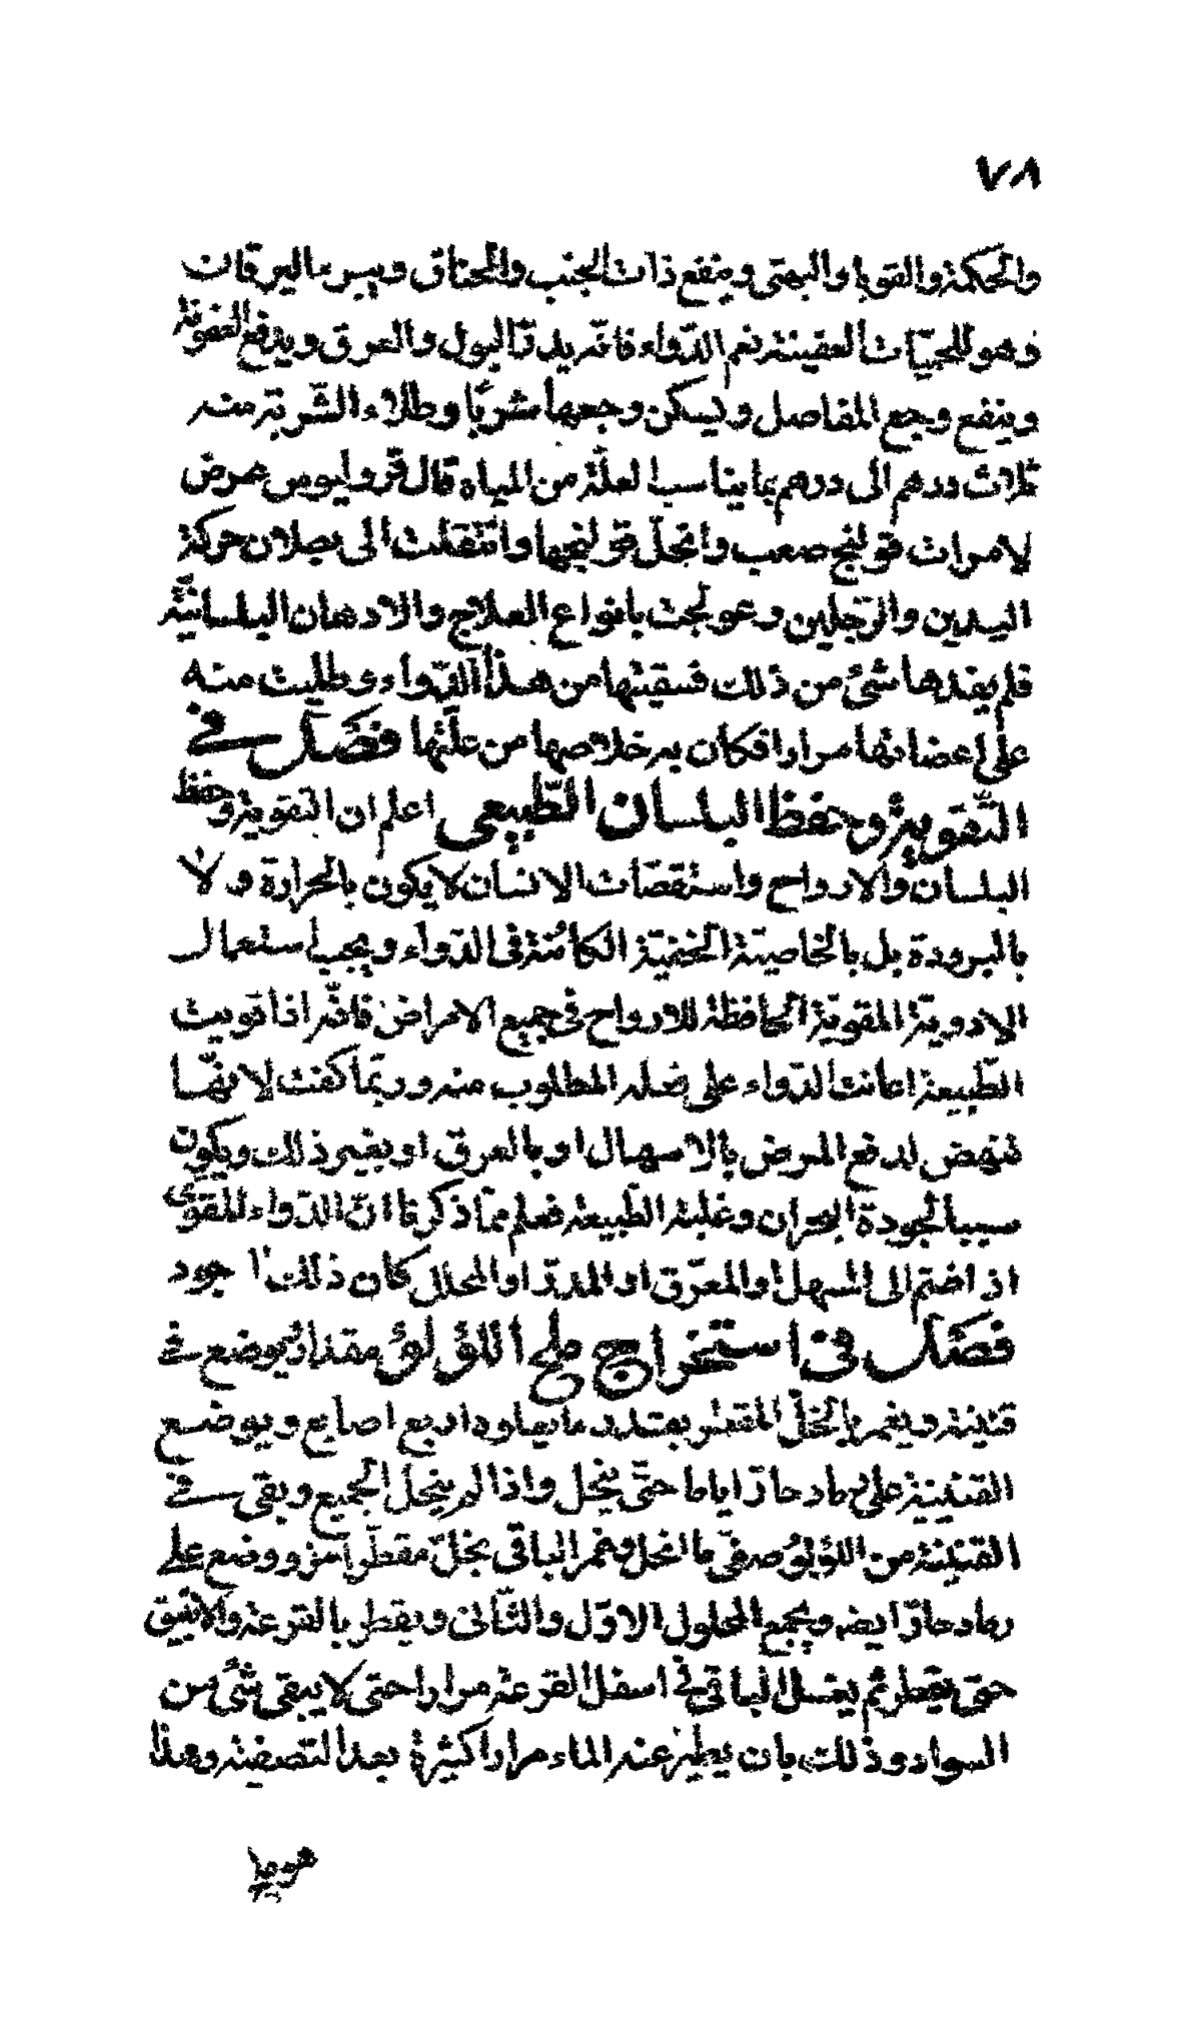 ٧٨
والحكة والقوبا والبهق وينفع ذات الجنب والخناق ويبرء اليرقان
وهو للحميّات العفينة نعم الدّواء فانّه يدرّ البول والعرق ويدفع العفونة
وينفع وجع المفاصل ويسكن وجعها شربًا وطلاء الشّربة منه
ثلاث درهم الى درهم بما يناسب العلّة من المياه قال قرو ليوس عرض
لامرات قولنج صعب وانحلّ قولنجها وانتقلت الى بطلان حركة
اليدين والرّجلين وعولجت بانواع العلاج والادهان البلسانيّة
فلم يفدها شئ من ذلك فسقيتها من هذا الدّواء وطليت منه
على اعضائها مرارا فكان به خلاصها من علّتها فصل في
التّقوية وحفظ البلسان الطّبيعى اعلم ان التقوية وحفظ
البلسان والارواح واستقصّات الانسان لا يكون بالحرارة ولا
بالبرودة بل بالخاصيّة الخفيّة الكائنة فى الدّواء ويجب استعمال
الادويّة المقويّة الحافظة للارواح فى جميع الامراض فانّه اذا قويت
الطّبيعة اعانت الدّواء على فعله المطلوب منه وربّما كفت لانّها
تنهض لدفع المرض بالاسهال او بالعرق او بغير ذلك ويكون
سببا لجودة البحران وغلبة الطّبيعة فعلم ممّا ذكرنا انّ الدّواء المقوّى
اذا ضمّ الى المسهل او المعرّق او المدرّ او المحلل كان ذلك اجود
فصل فى استخراج ملح اللؤلؤ مقدار يوضع في
قنينة ويغمر بالخلّ المقطر بمقدار ما يعلوه اربع اصابع ويوضع
القنينة على رماد حارّ اياما حتّى ينحل واذا لم ينحل الجميع وبقى في
القنينة من اللؤلؤ صفّى ما انحل وغمر الباقى بخلّ مقطّر آخر ووضع على
رماد حارّ ايضا ويجمع المحلول الاوّل والثّانى ويقطر بالقرعة والانبيق
حتى يقطر ثم يغسل الباقى في اسفل القرعة مرارا حتى لا يبقى شئ من
السواد وذلك بان يطير عنه الماء مرارا كثيرة بعد التصفية وهذا
هو ملح